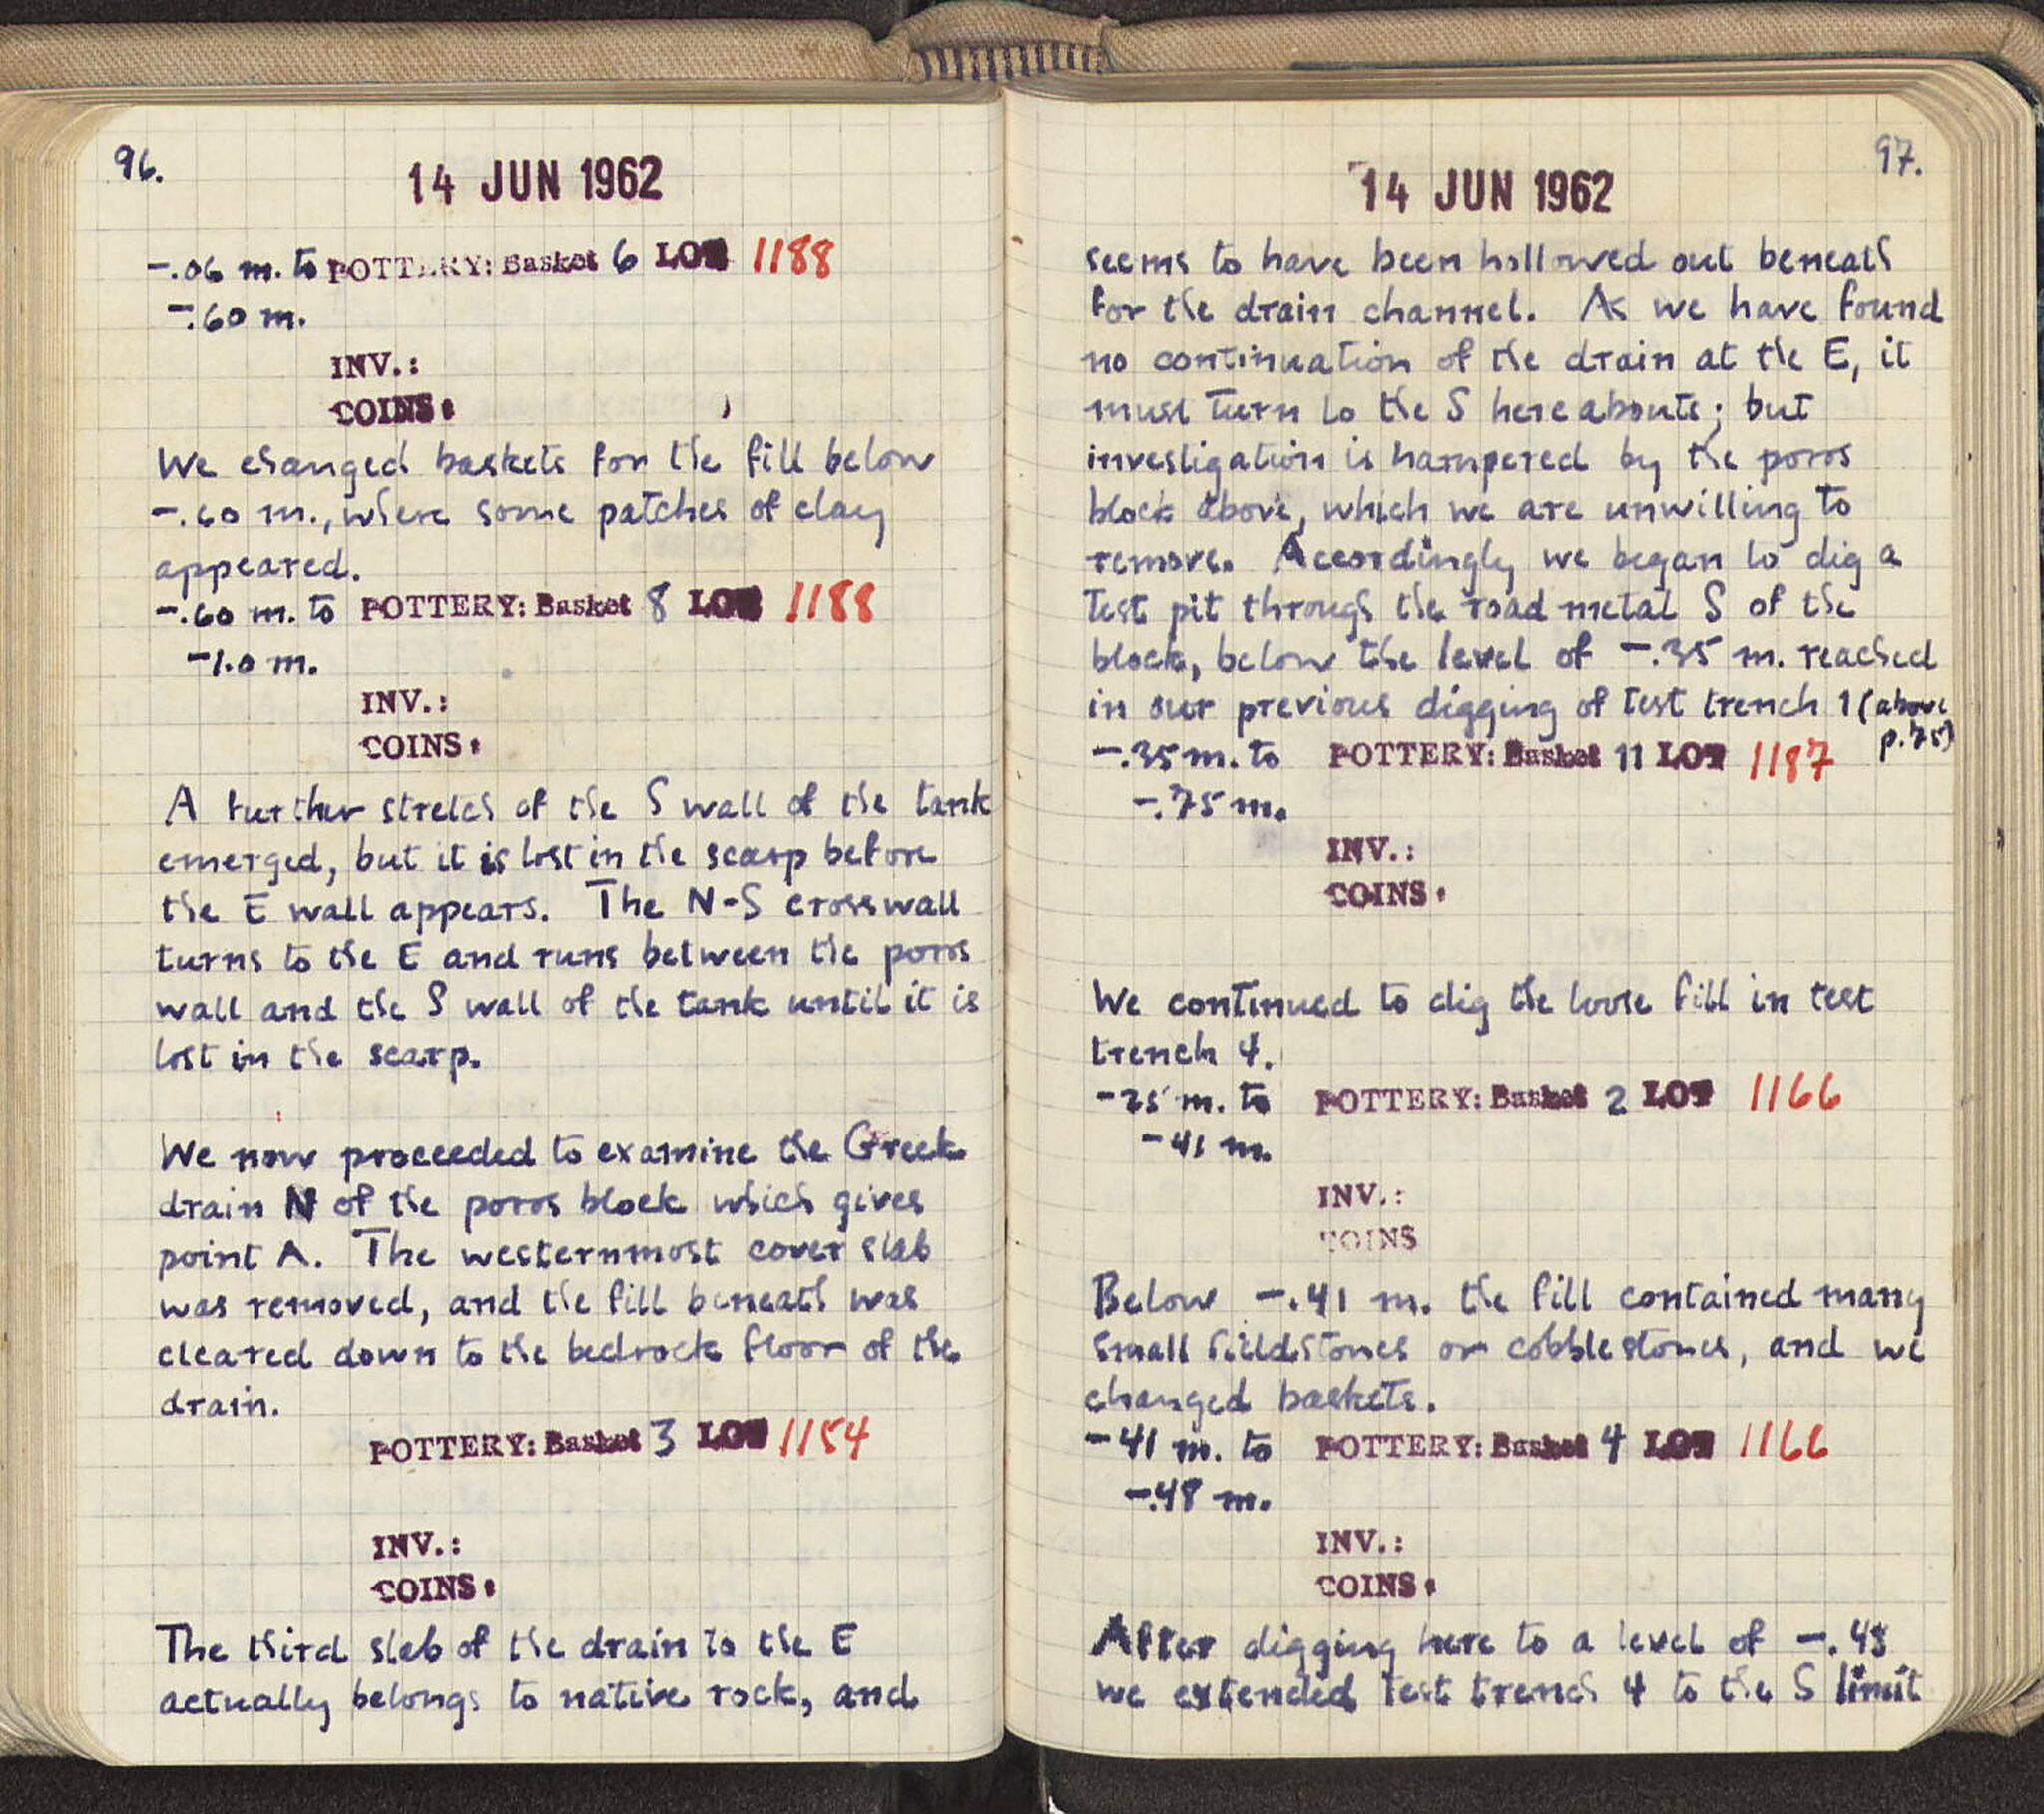 96.
14 JUN 1962
-.06 m. to POTTERY: Basket 6 LOT 1188
-.60 m.
INV.:
COINS:
We changed baskets for the fill below
-.60 m., where some patches of clay
appeared.
-.60 m. to POTTERY: Basket 8 LOT 1188
-1.0 m.
INV.:
COINS:
A further stretch of the S wall of the tank
emerged, but it is lost in the scarp before
the E wall appears. The N-S crosswall
turns to the E and runs between the poros
wall and the S wall of the tank until it is
lost in the scarp.
We now proceeded to examine the Greek
drain N of the poros block which gives
point A. The westernmost cover slab
was removed, and the fill beneath was
cleared down to the bedrock floor of the
drain.
POTTERY: Basket 3 LOT 1154
INV.:
COINS:
The third slab of the drain to the E
actually belongs to native rock, and
97.
14 JUN 1962
seems to have been hollowed out beneath
for the drain channel. As we have found
no continuation of the drain at the E, it
must turn to the S hereabouts; but
investigation is hampered by the poros
block above, which we are unwilling to
remove. Accordingly we began to dig a
test pit through the road metal S of the
block, below the level of -.35 m. reached
in our previous digging of test trench 1 (above
p. 75)
-.35 m. to POTTERY: Basket 11 LOT 1187
-.75 m.
INV.:
COINS:
We continued to dig the loose fill in test
trench 4.
-25 m. to POTTERY: Basket 2 LOT 1166
-41 m.
INV.:
COINS
Below -.41 m. the fill contained many
small fieldstones or cobblestones, and we
changed baskets.
-41 m. to POTTERY: Basket 4 LOT 1166
-.48 m.
INV.:
COINS:
After digging here to a level of -.48
we extended test trench 4 to the S limit